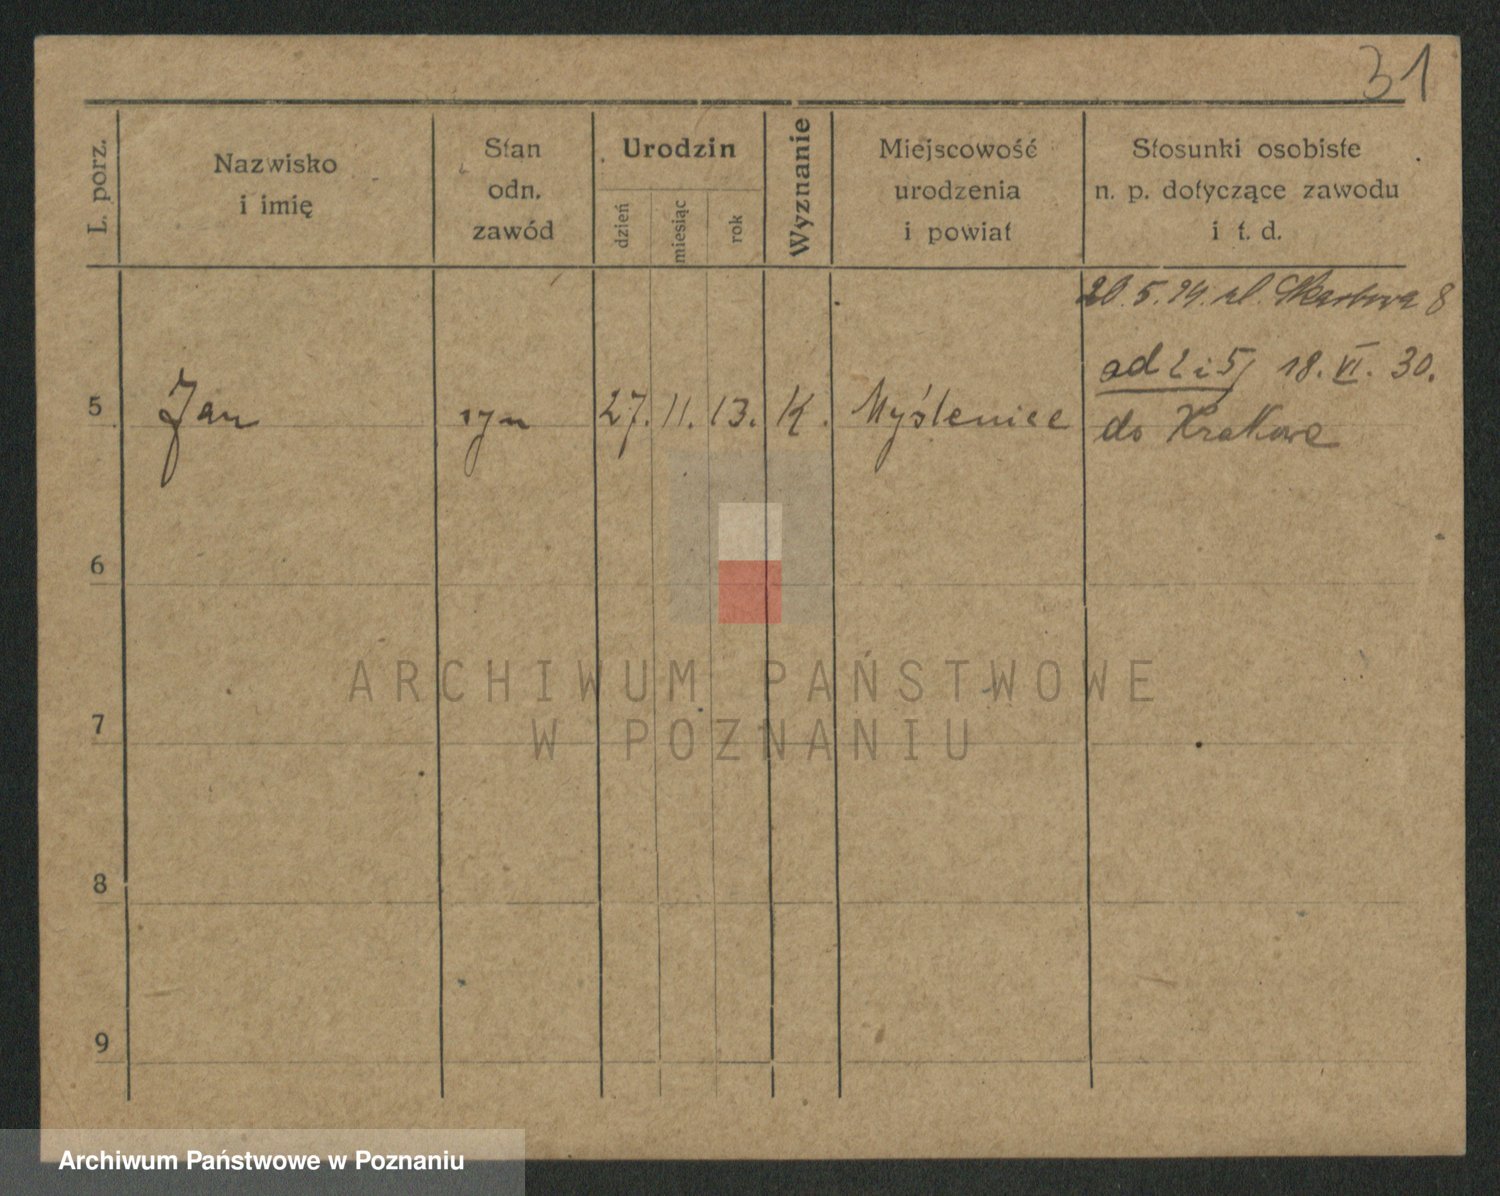 31
L. porz.
Nazwisko
i imię
Stan
odn.
zawód
Urodzin
dzień
miesiąc
rok
Wyznanie
Miejscowość
urodzenia
i powiat
Stosunki osobiste
n. p. dotyczące zawodu
i t. d.
20. 5. 24. ul. Skarbowa 8
ad 2 i 5/ 18. VI. 30.
5 Jan syn 27. 11. 13. K. Myślenice
do Krakowa
6
7
8
9
ARCHIWUM PAŃSTWOWE
W POZNANIU
Archiwum Państwowe w Poznaniu